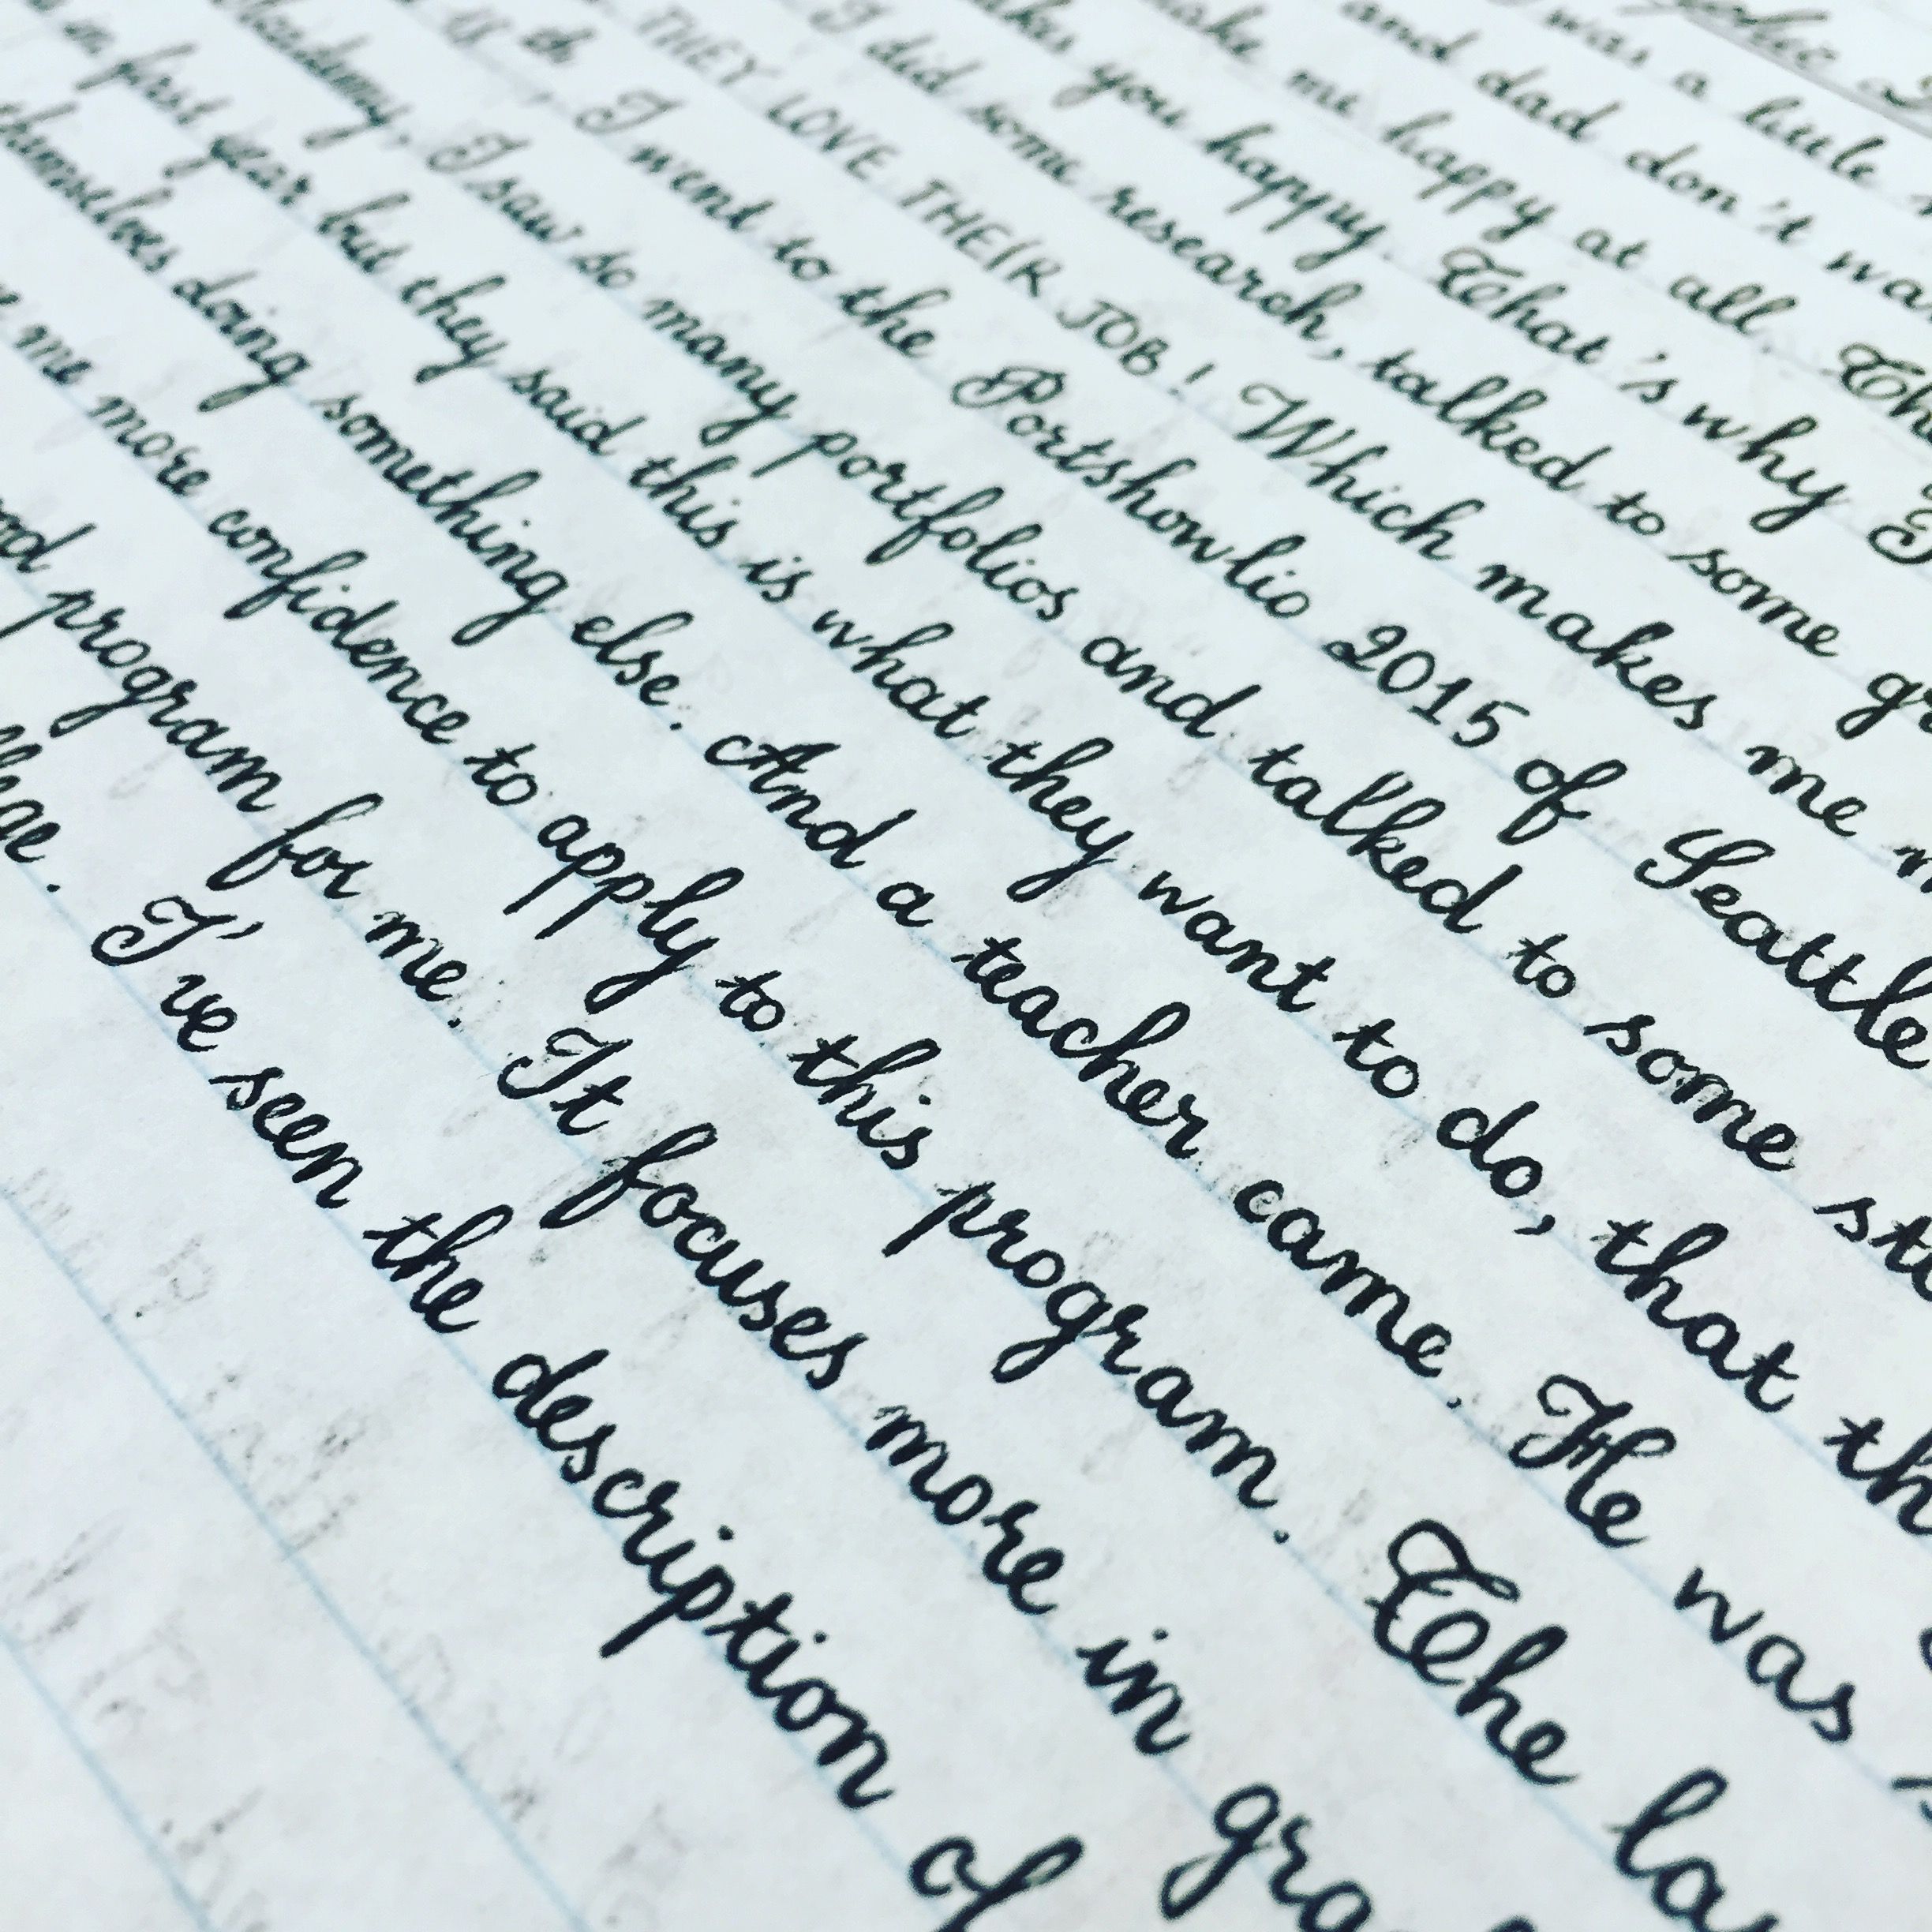 was a little
and dad don't
make me happy at all.
you happy. That's why I
I did some research, talked to some
THEY LOVE THEIR JOB! Which makes me
th, I went to the Portshowlio 2015 of Seattle
Academy, I saw so many portfolios and talked to some
in first year but they said this is what they want to do, that
themselves doing something else. And a teacher came. He was
me more confidence to apply to this program. The
program for me. It focuses more in
I've seen the description of